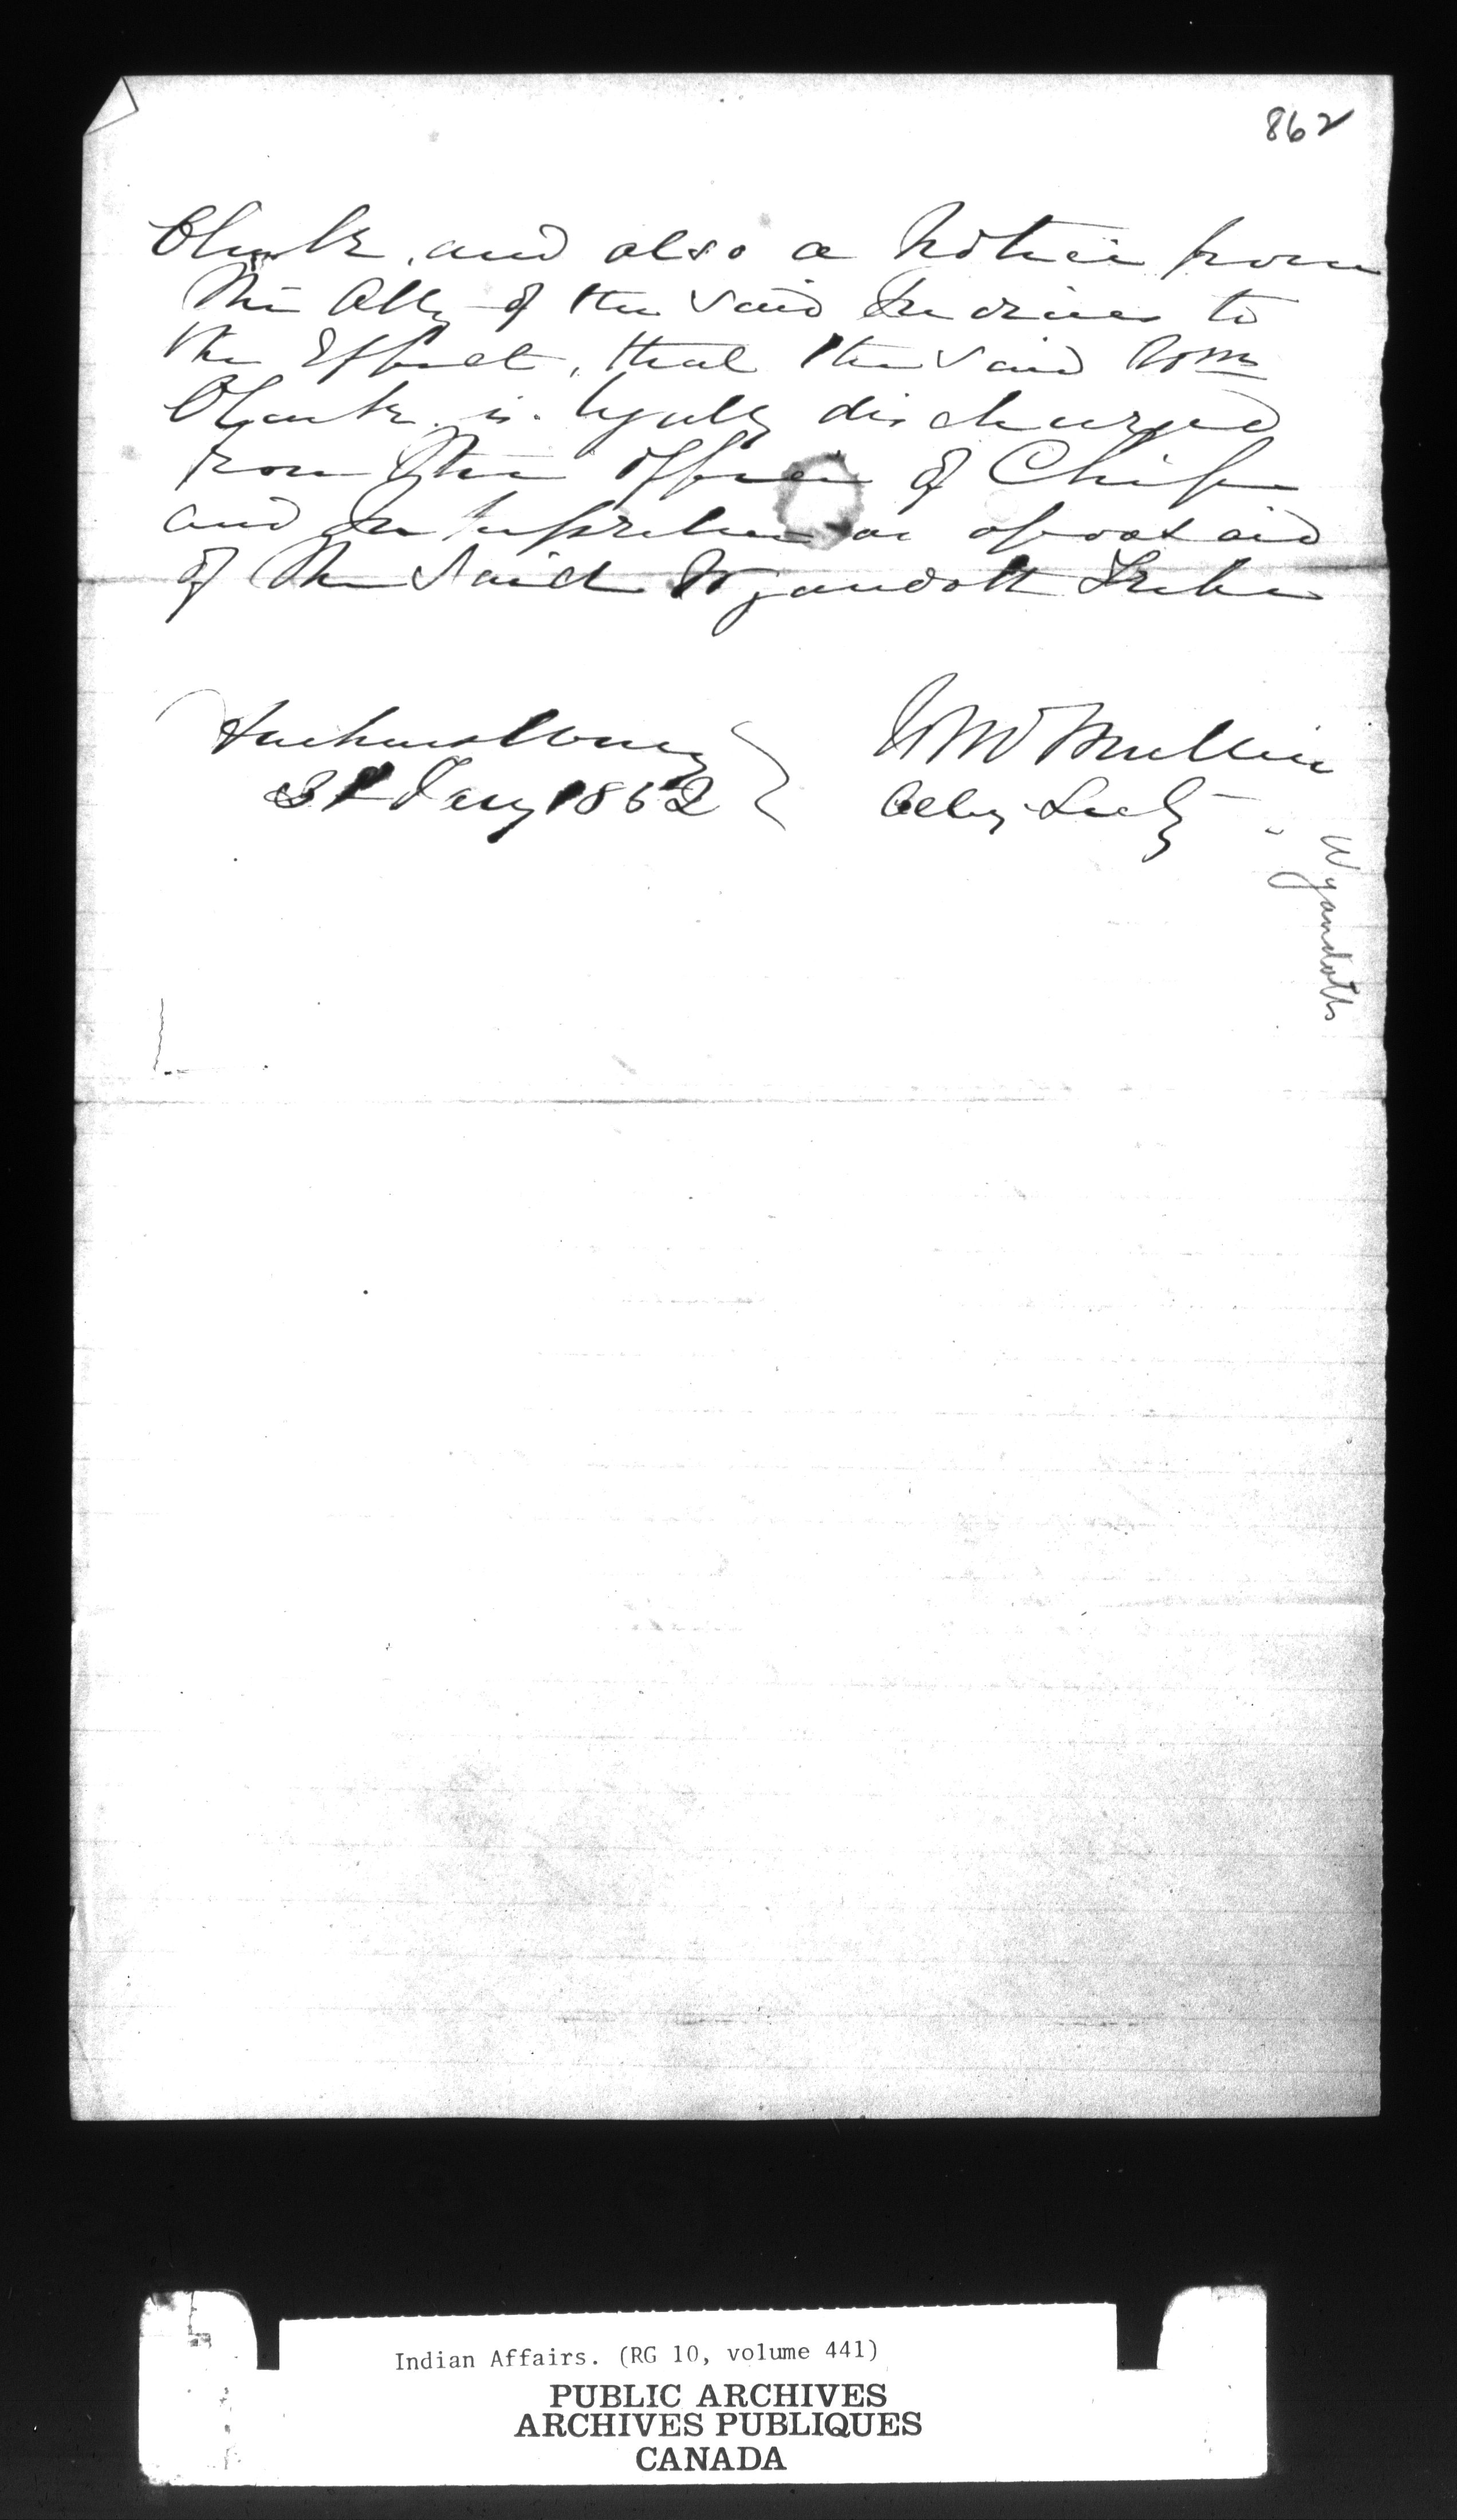 862
Clark, and also a Notice from
the Atty of the said Indians to
the Effect, that the said Wm
Clark is legally discharged
from the office of Chief
and Interpreter as aforesaid
of the said Wyandott Tribe
Amherstburg
31 Jany 1862
Mullin
Atty
Wyandotts
Indian Affairs. (RG 10, volume 441)
PUBLIC ARCHIVES
ARCHIVES PUBLIQUES
CANADA